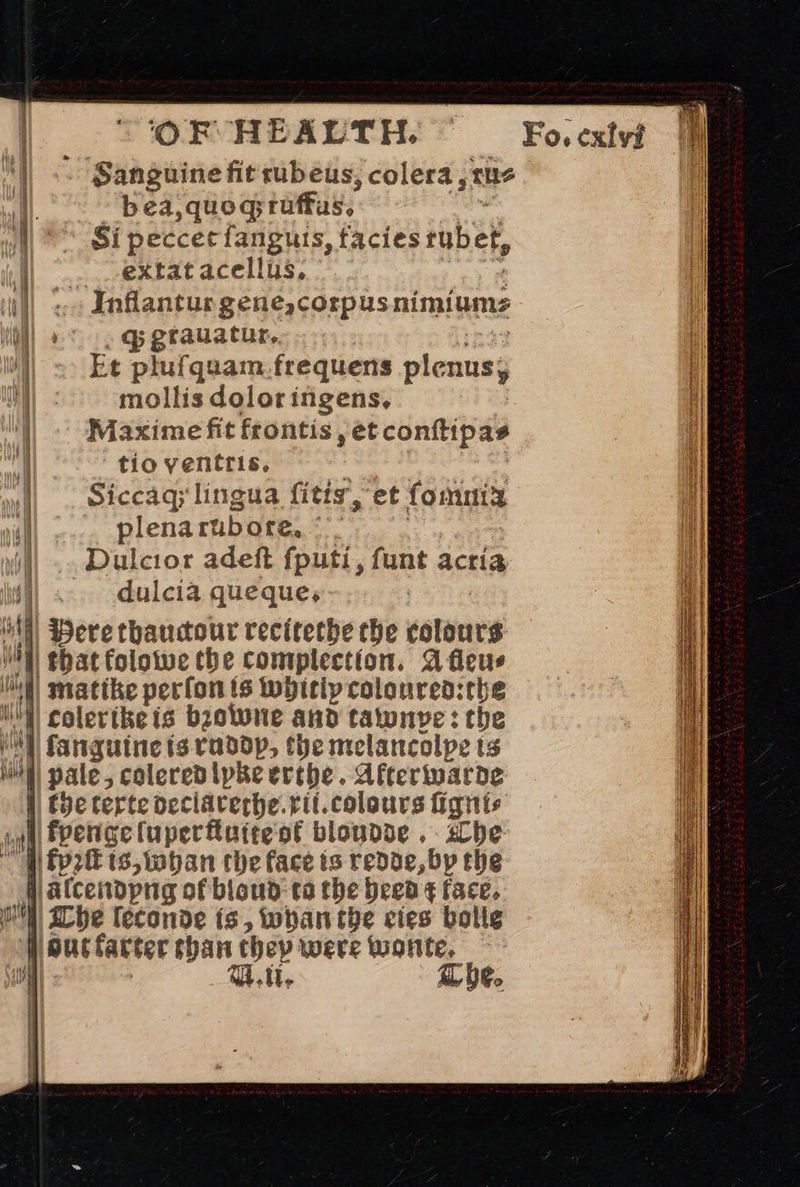 OF HEALTH. Fo. cxlvi
Sanguine fit rubeus, colera, ru⸗
bea, quoqꝫ ruffus.
Si peccet ſanguis, facies rubet,
extat acellus.
Inflantur gene, corpus nimium⸗
qꝫ grauatur.
Et pluſquam frequens plenus,
mollis dolor ingens.
Maxime fit frontis, et conſtipa⸗
tio ventris.
Siccaqꝫ lingua ſitis, et ſomnia
plena rubore.
Dulcior adeſt ſputi, ſunt acria
dulcia queque.
Here thauctour recitethe the colours
that folowe the complection. A fleu⸗
matike perſon is whitly coloured: the
colerike is browne and tawnye: the
ſanguine is ruddy, the melancolye is
pale, colered lyke erthe. Afterwarde
the texte declarethe .xii. colours ſigni⸗
fyenge ſuperfluite of bloudde. The
fyrſt is, whan the face is redde, by the
aſcendyng of bloud to the heed & face.
The ſeconde is, whan the eies bolle
out farter than they were wonte.
U.ii. The